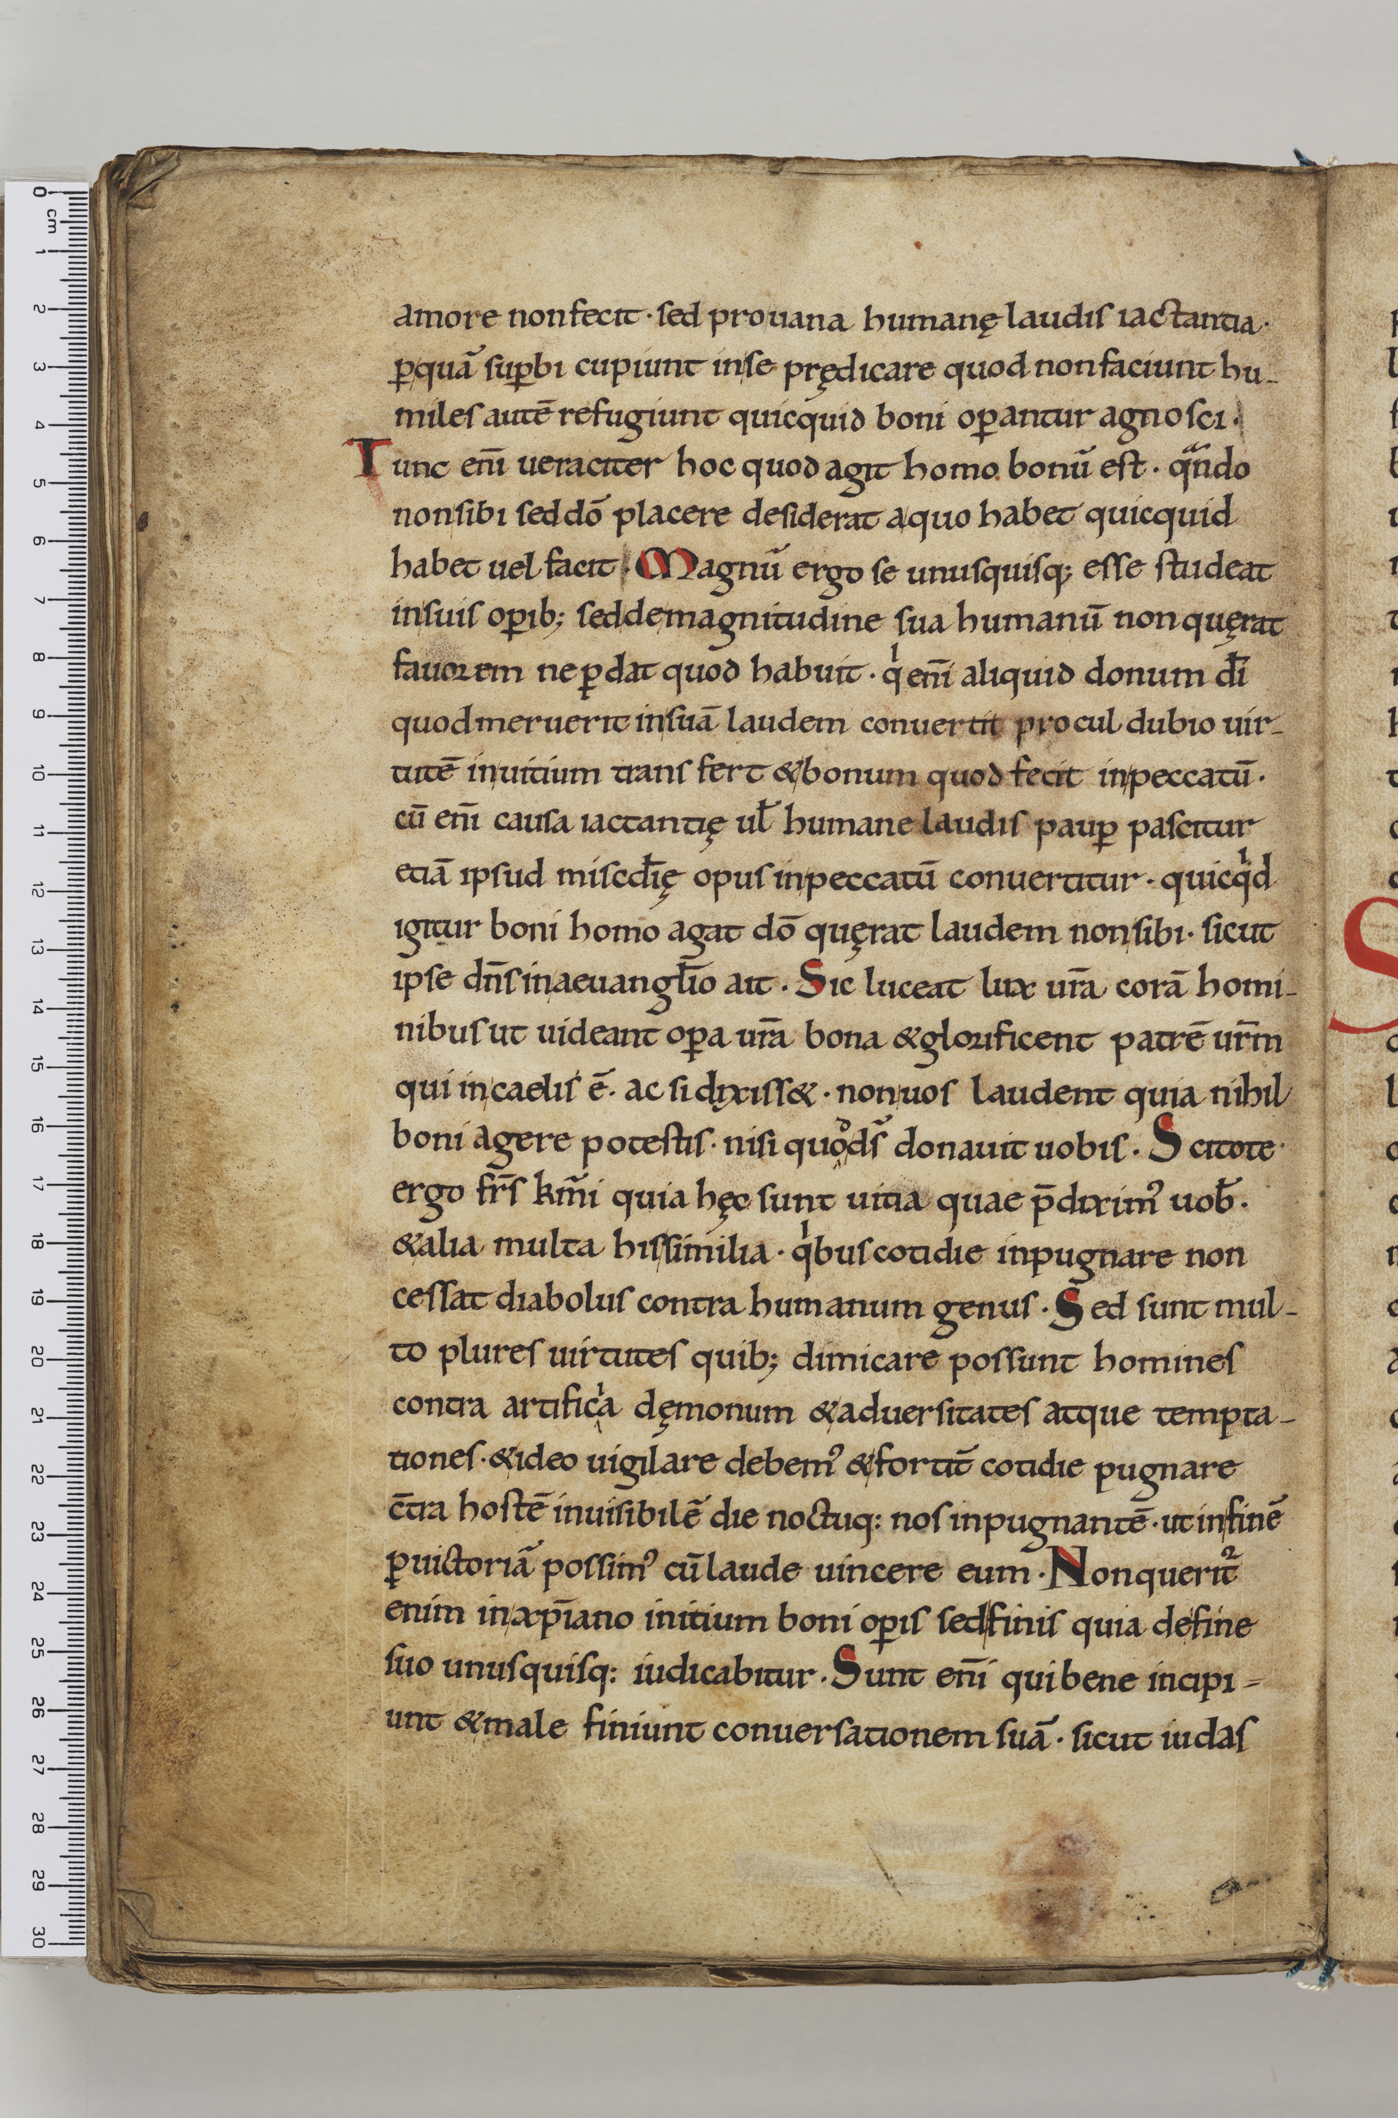 amore non fecit · sed pro uana humanę laudis iactantia ·
ꝑ quā suꝑbi cupiunt in se prędicare quod non faciunt hu-
miles autē refugiunt quicquid boni oꝑantur agnosci ·
Tunc em̄ ueraciter hoc quod agit homo bonū est · qᵃndo
non sibi sed dō placere desiderat a quo habet quicquid
habet uel facit · Magnū ergo se unusquisq; esse studeat
in suis oꝑib; sed de magnitudine sua humanū non quęrat
fauorem ne ꝑdat quod habuit · qⁱ em̄ aliquid donum dī
quod meruerit in suā laudem conuertit procul dubio uir-
tutē in uitium transfert & bonum quod fecit in peccatū ·
cū em̄ causa iactantię ul̄ humane laudis pauꝑ pascitur
etiā ipsud miscd̄ię opus in peccatū conuertitur · quicqⁱd
igitur boni homo agat dō quęrat laudem non sibi · sicut
ipse dn̄s in aeuangl̄io ait · Sic luceat lux ur̄a corā homi-
nibus ut uideant oꝑa ur̄a bona & glorificent patrē ur̄m
qui in caelis ē · ac si dixiss& · non uos laudent quia nihil
boni agere potestis · nisi quod ds̄ donauit uobis · Scitote
ergo fr̄s km̄i quia hęc sunt uitia quae p̄dixim᾿ uob̄ ·
& alia multa his similia · qⁱbus cotidie inpugnare non
cessat diabolus contra humanum genus · Sed sunt mul-
to plures uirtutes quib; dimicare possunt homines
contra artificia dęmonum & aduersitates atque tempta-
tiones · & ideo uigilare debem᾿ & fortit̄ cotidie pugnare
c̄tra hostē inuisibilē die noctuq: nos inpugnantē · ut in finē
ꝑ uictoriā possim᾿ cū laude uincere eum · Non querit᷑
enim in xp̄iano initium boni oꝑis sed finis quia de fine
suo unusquisq: iudicabitur · Sunt em̄ qui bene incipi-
unt & male finiunt conuersationem suā · sicut iudas